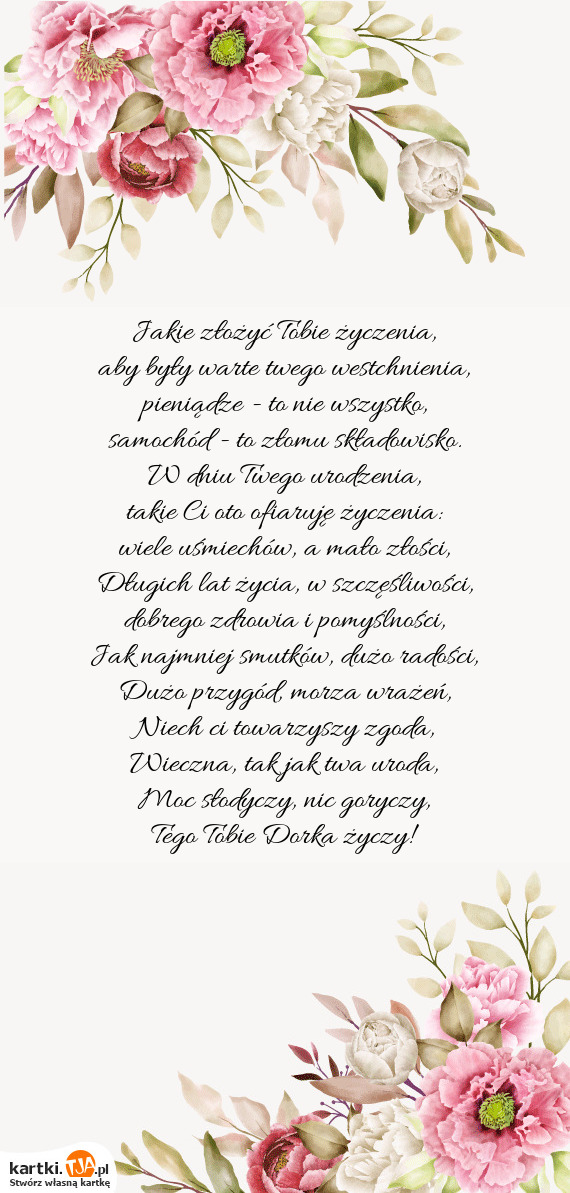 Jakie złożyć Tobie życzenia,
aby były warte twego westchnienia,
pieniądze - to nie wszystko,
samochód - to złomu składowisko.
W dniu Twego urodzenia,
takie Ci oto ofiaruję życzenia:
wiele uśmiechów, a mało złości,
Długich lat życia, w szczęśliwości,
dobrego zdrowia i pomyślności,
Jak najmniej smutków, dużo radości,
Dużo przygód, morza wrażeń,
Niech ci towarzyszy zgoda,
Wieczna, tak jak twa uroda,
Moc słodyczy, nic goryczy,
Tego Tobie Dorka życzy!
kartki.TJA.pl
Stwórz własną kartkę